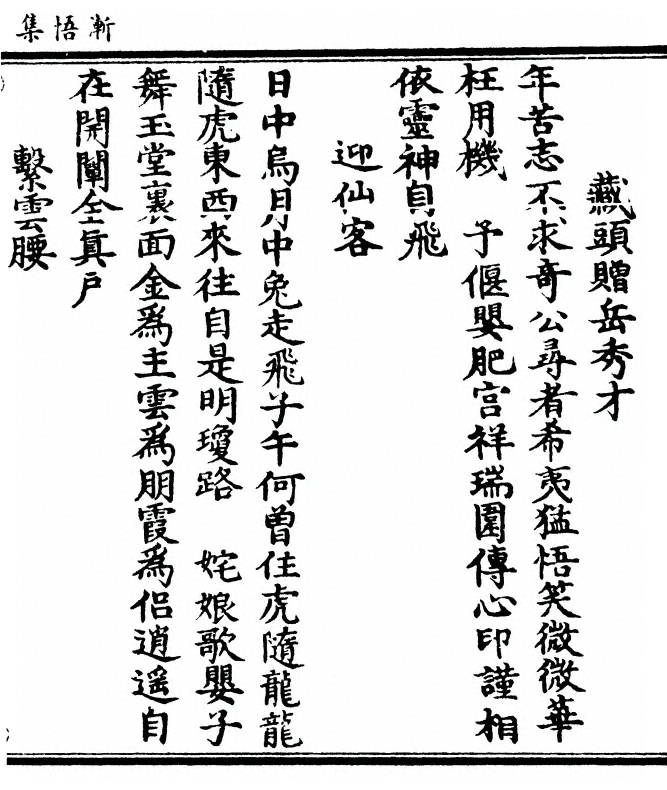 漸悟集
藏頭贈岳秀才
年苦志不求奇公尋者希夷猛悟笑微微華
枉用機　予偃嬰肥宫祥瑞園傳心印謹相
依靈神自飛
迎仙客
日中烏月中兔走飛子午何曾住虎隨龍龍
隨虎東西來往自是明瓊路　姹娘歌嬰子
舞玉堂裏面金爲主雲爲朋霞爲侣逍遥自
在開闡全眞戶
繫雲腰